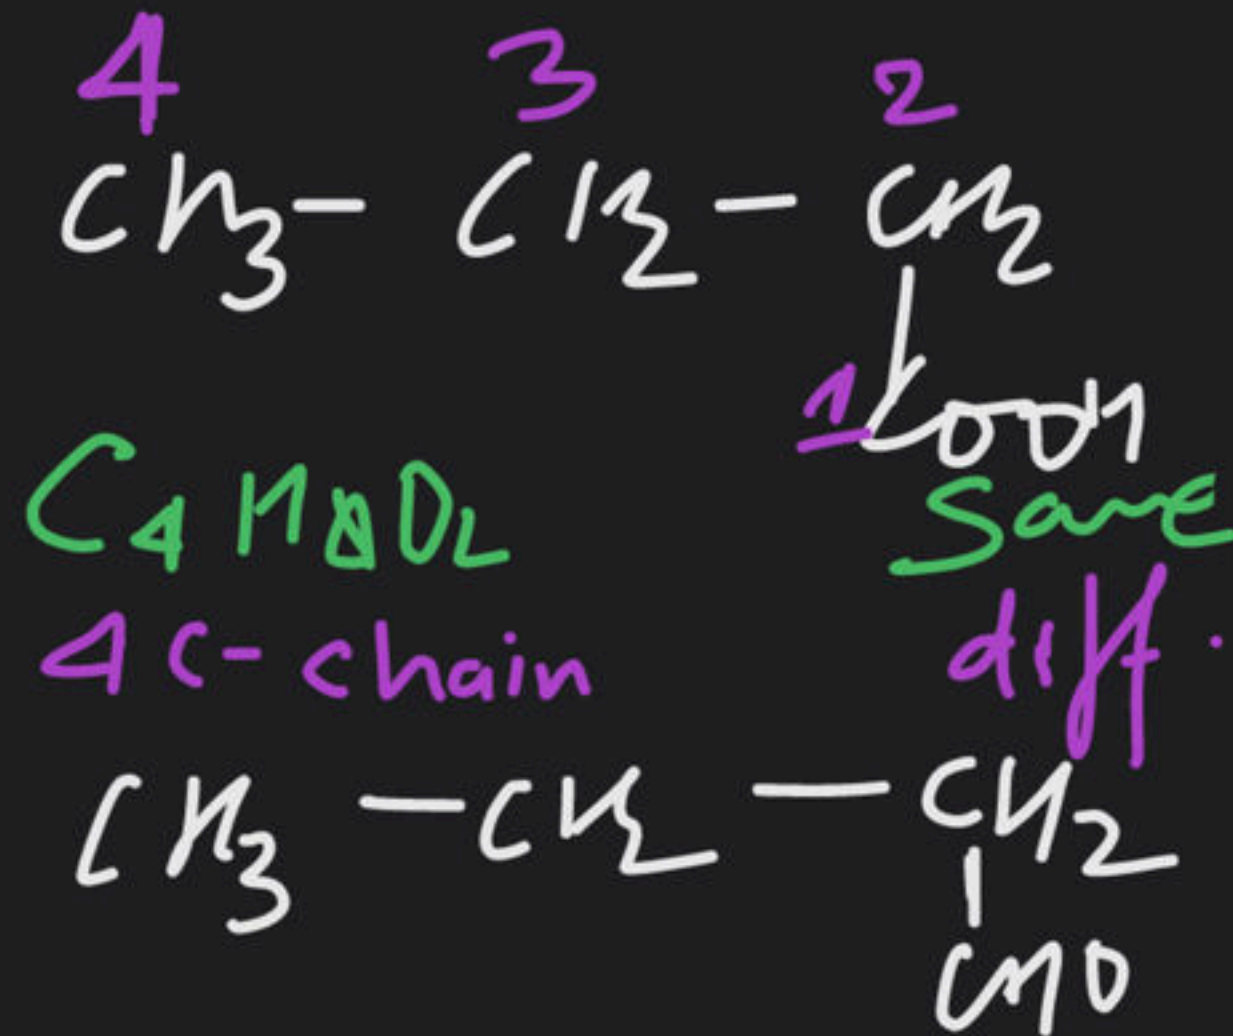 4 3 2
CH3 - CH2 - CH2
1 COOH
C4H8O2 Same
4 C- chain diff.
CH3 - CH2 - CH2
CHO